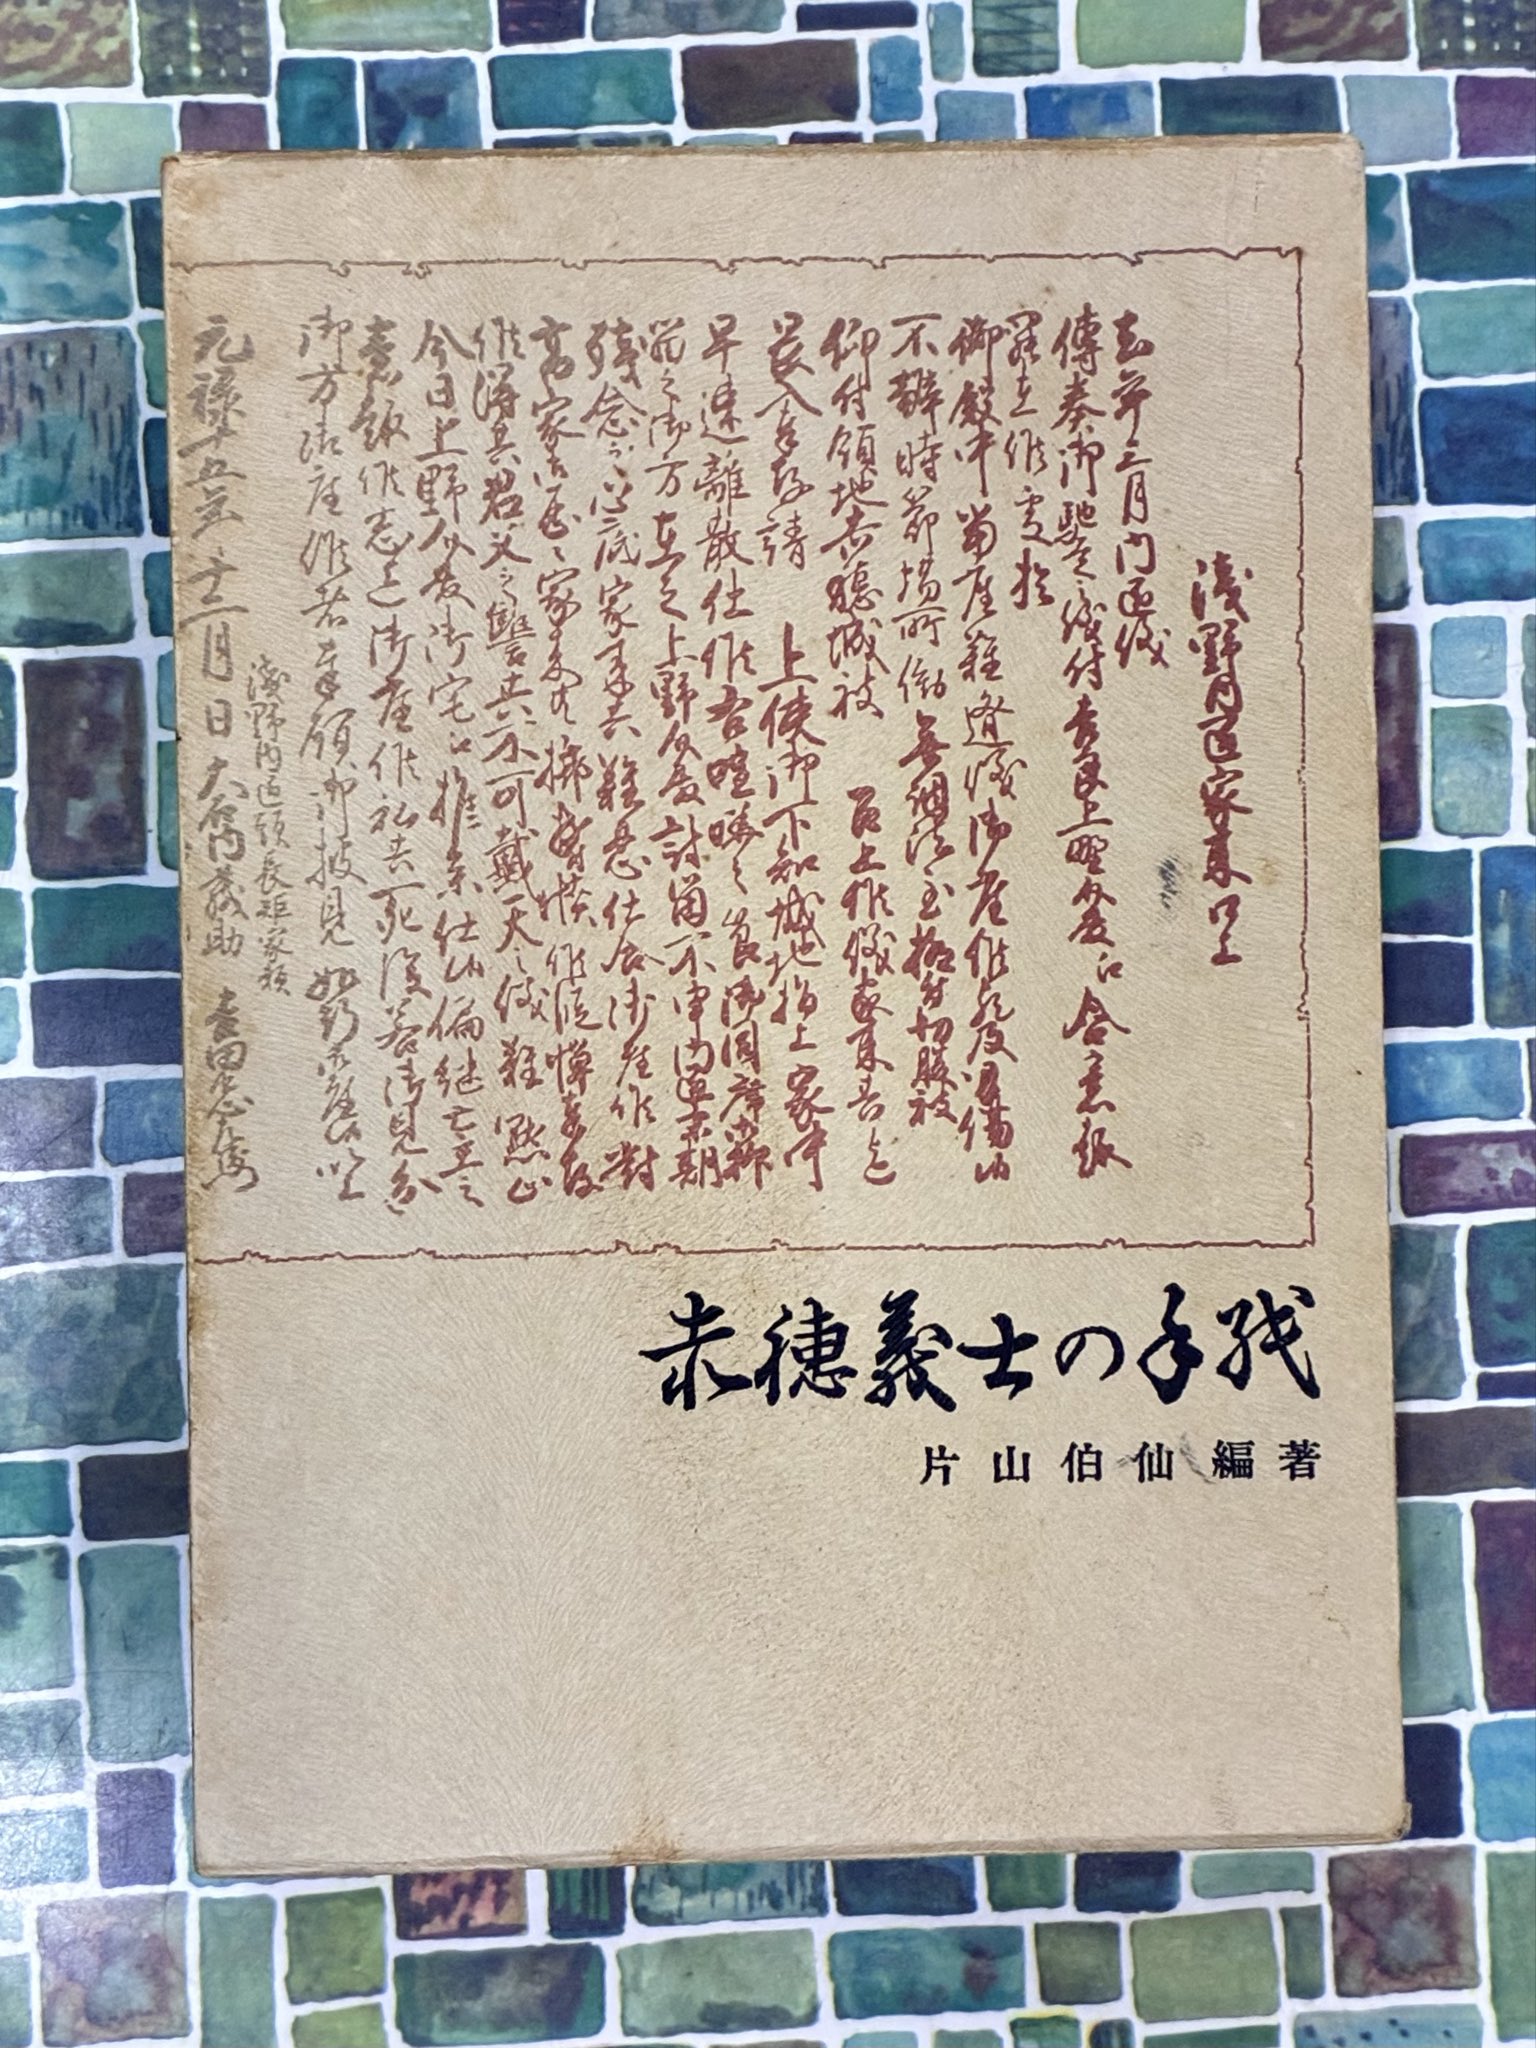 淺野内匠家来口上
去年三月内匠儀
傳奏御馳走之儀付吉良上野介殿江含意趣
罷在候處於
御殿中當座難遁儀御座候歟及刃傷候
不辨時節場所働無調法至極付切腹被
仰付領地赤穂城被 召上候儀家来共迄
畏入奉存請 上使御下知城地指上家中
早速離散仕候右喧嘩之節御同席御抑
留之御方在之上野介殿討留不申内匠末期
残念之心底家来共難忍仕合御座候對
高家御歴々家来共挿鬱憤候段憚奉存
候得共君父之讐共不可戴天之儀難黙止
今日上野介殿御宅江推参仕候偏継亡主之
意趣候志迄御座候私共死後若御見分
御方御座候者奉願御披見如斯御座候以上
淺野内匠頭長矩家頼
元禄十五年十二月日 大石内蔵助 吉田忠左衛
赤穂義士の手紙
片山伯仙編著